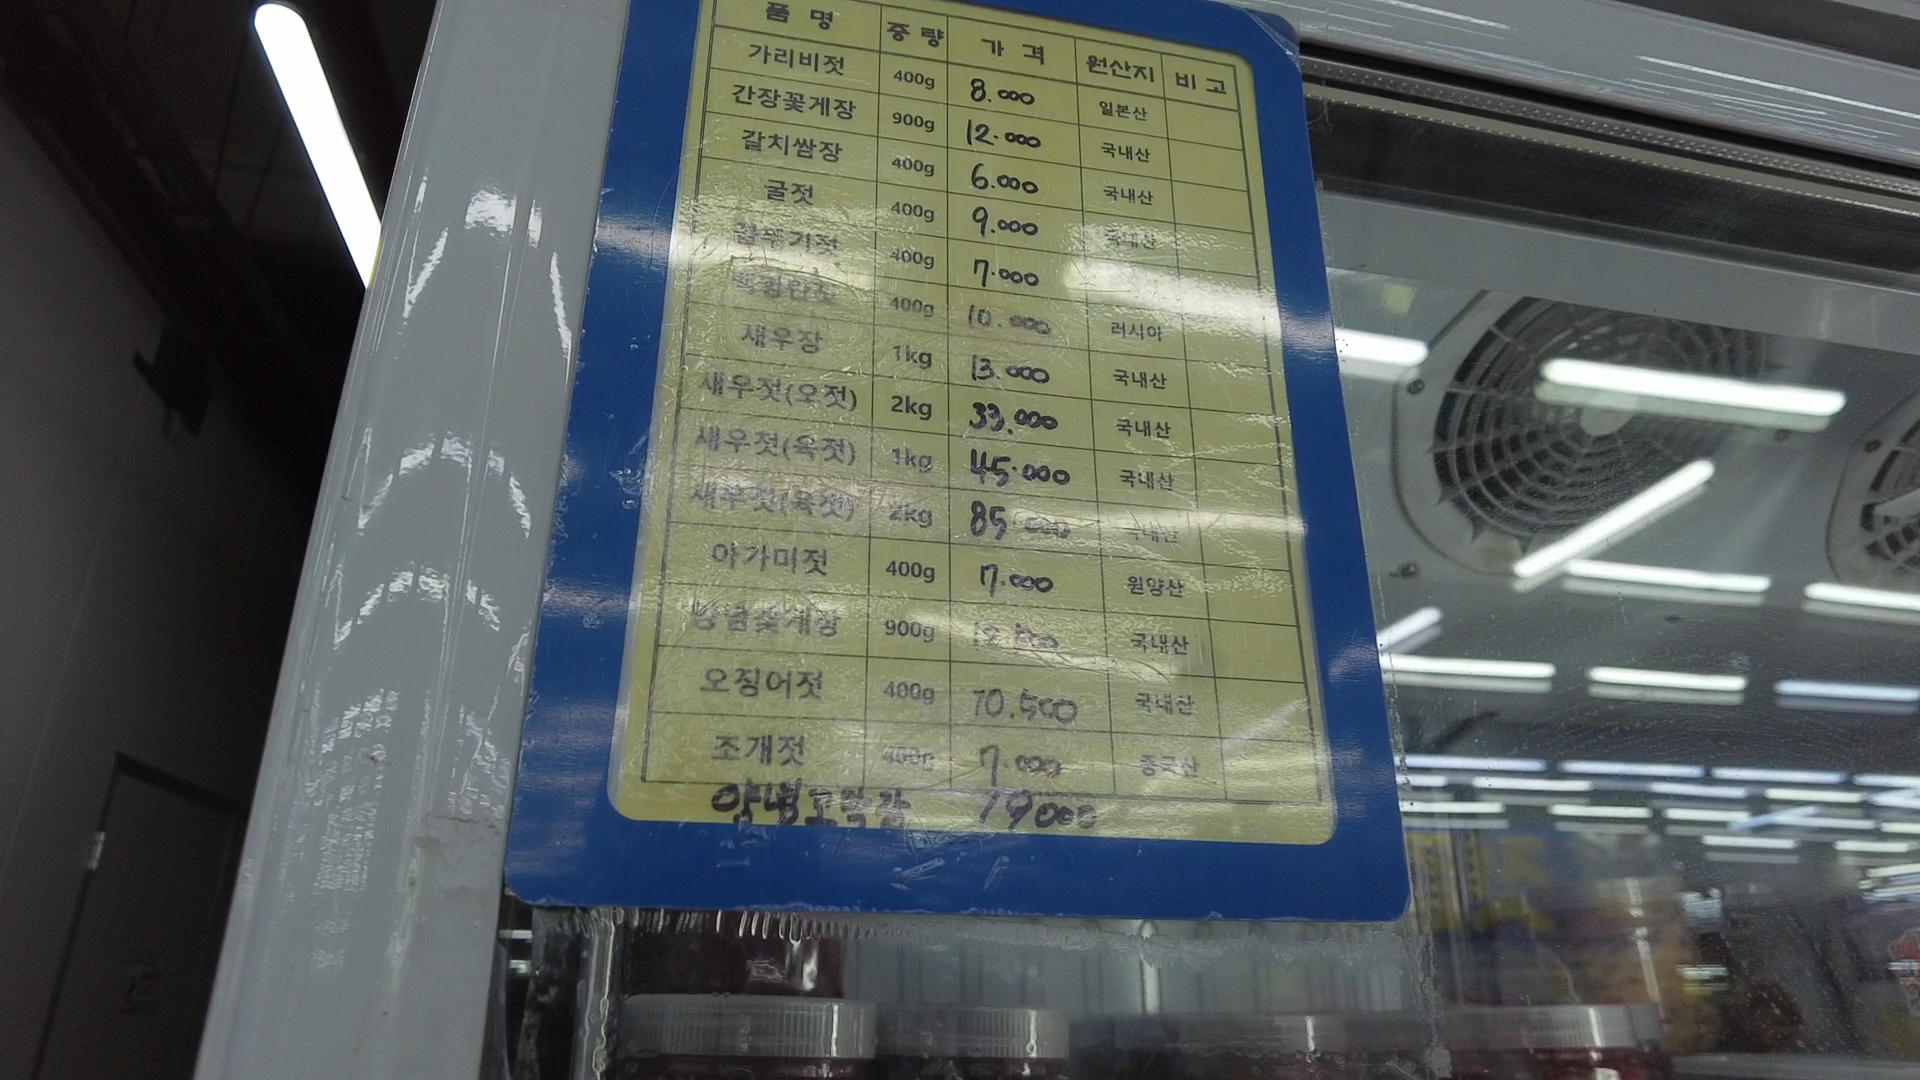 품 명 중 량 가 격 원산지 비 고
가리비젓 400g 8.000 일본산
간장꽃게장 900g 12.000 국내산
갈치쌈장 400g 6.000 국내산
굴젓 400g 9.000 국내산
꼴뚜기젓 400g 7.000
400g 10.000 러시아
새우장 1kg 13.000 국내산
새우젓(오젓) 2kg 33.000 국내산
새우젓(육젓) 1kg 45.000 국내산
새우젓(육젓) 2kg 85.000 국내산
아가미젓 400g 7.000 원양산
양념꽃게장 900g 국내산
오징어젓 400g 10.500 국내산
조개젓 400g 7.000 중국산
양념꼬막장 19000